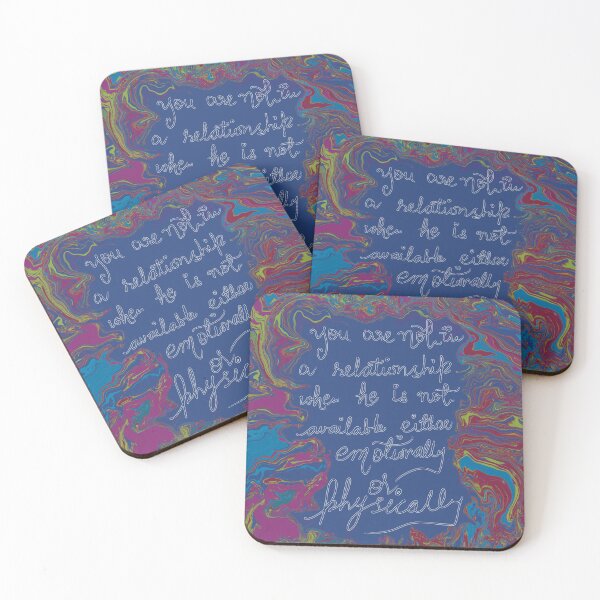 you are not in
a relationship
when he is not
you are not in
a relationship
when he is not
available either
emotionally
you are not in
a relationship
when he is not
available either
emotionally
or
physically
you are not in
a relationship
when he is not
available either
emotionally
or
physically